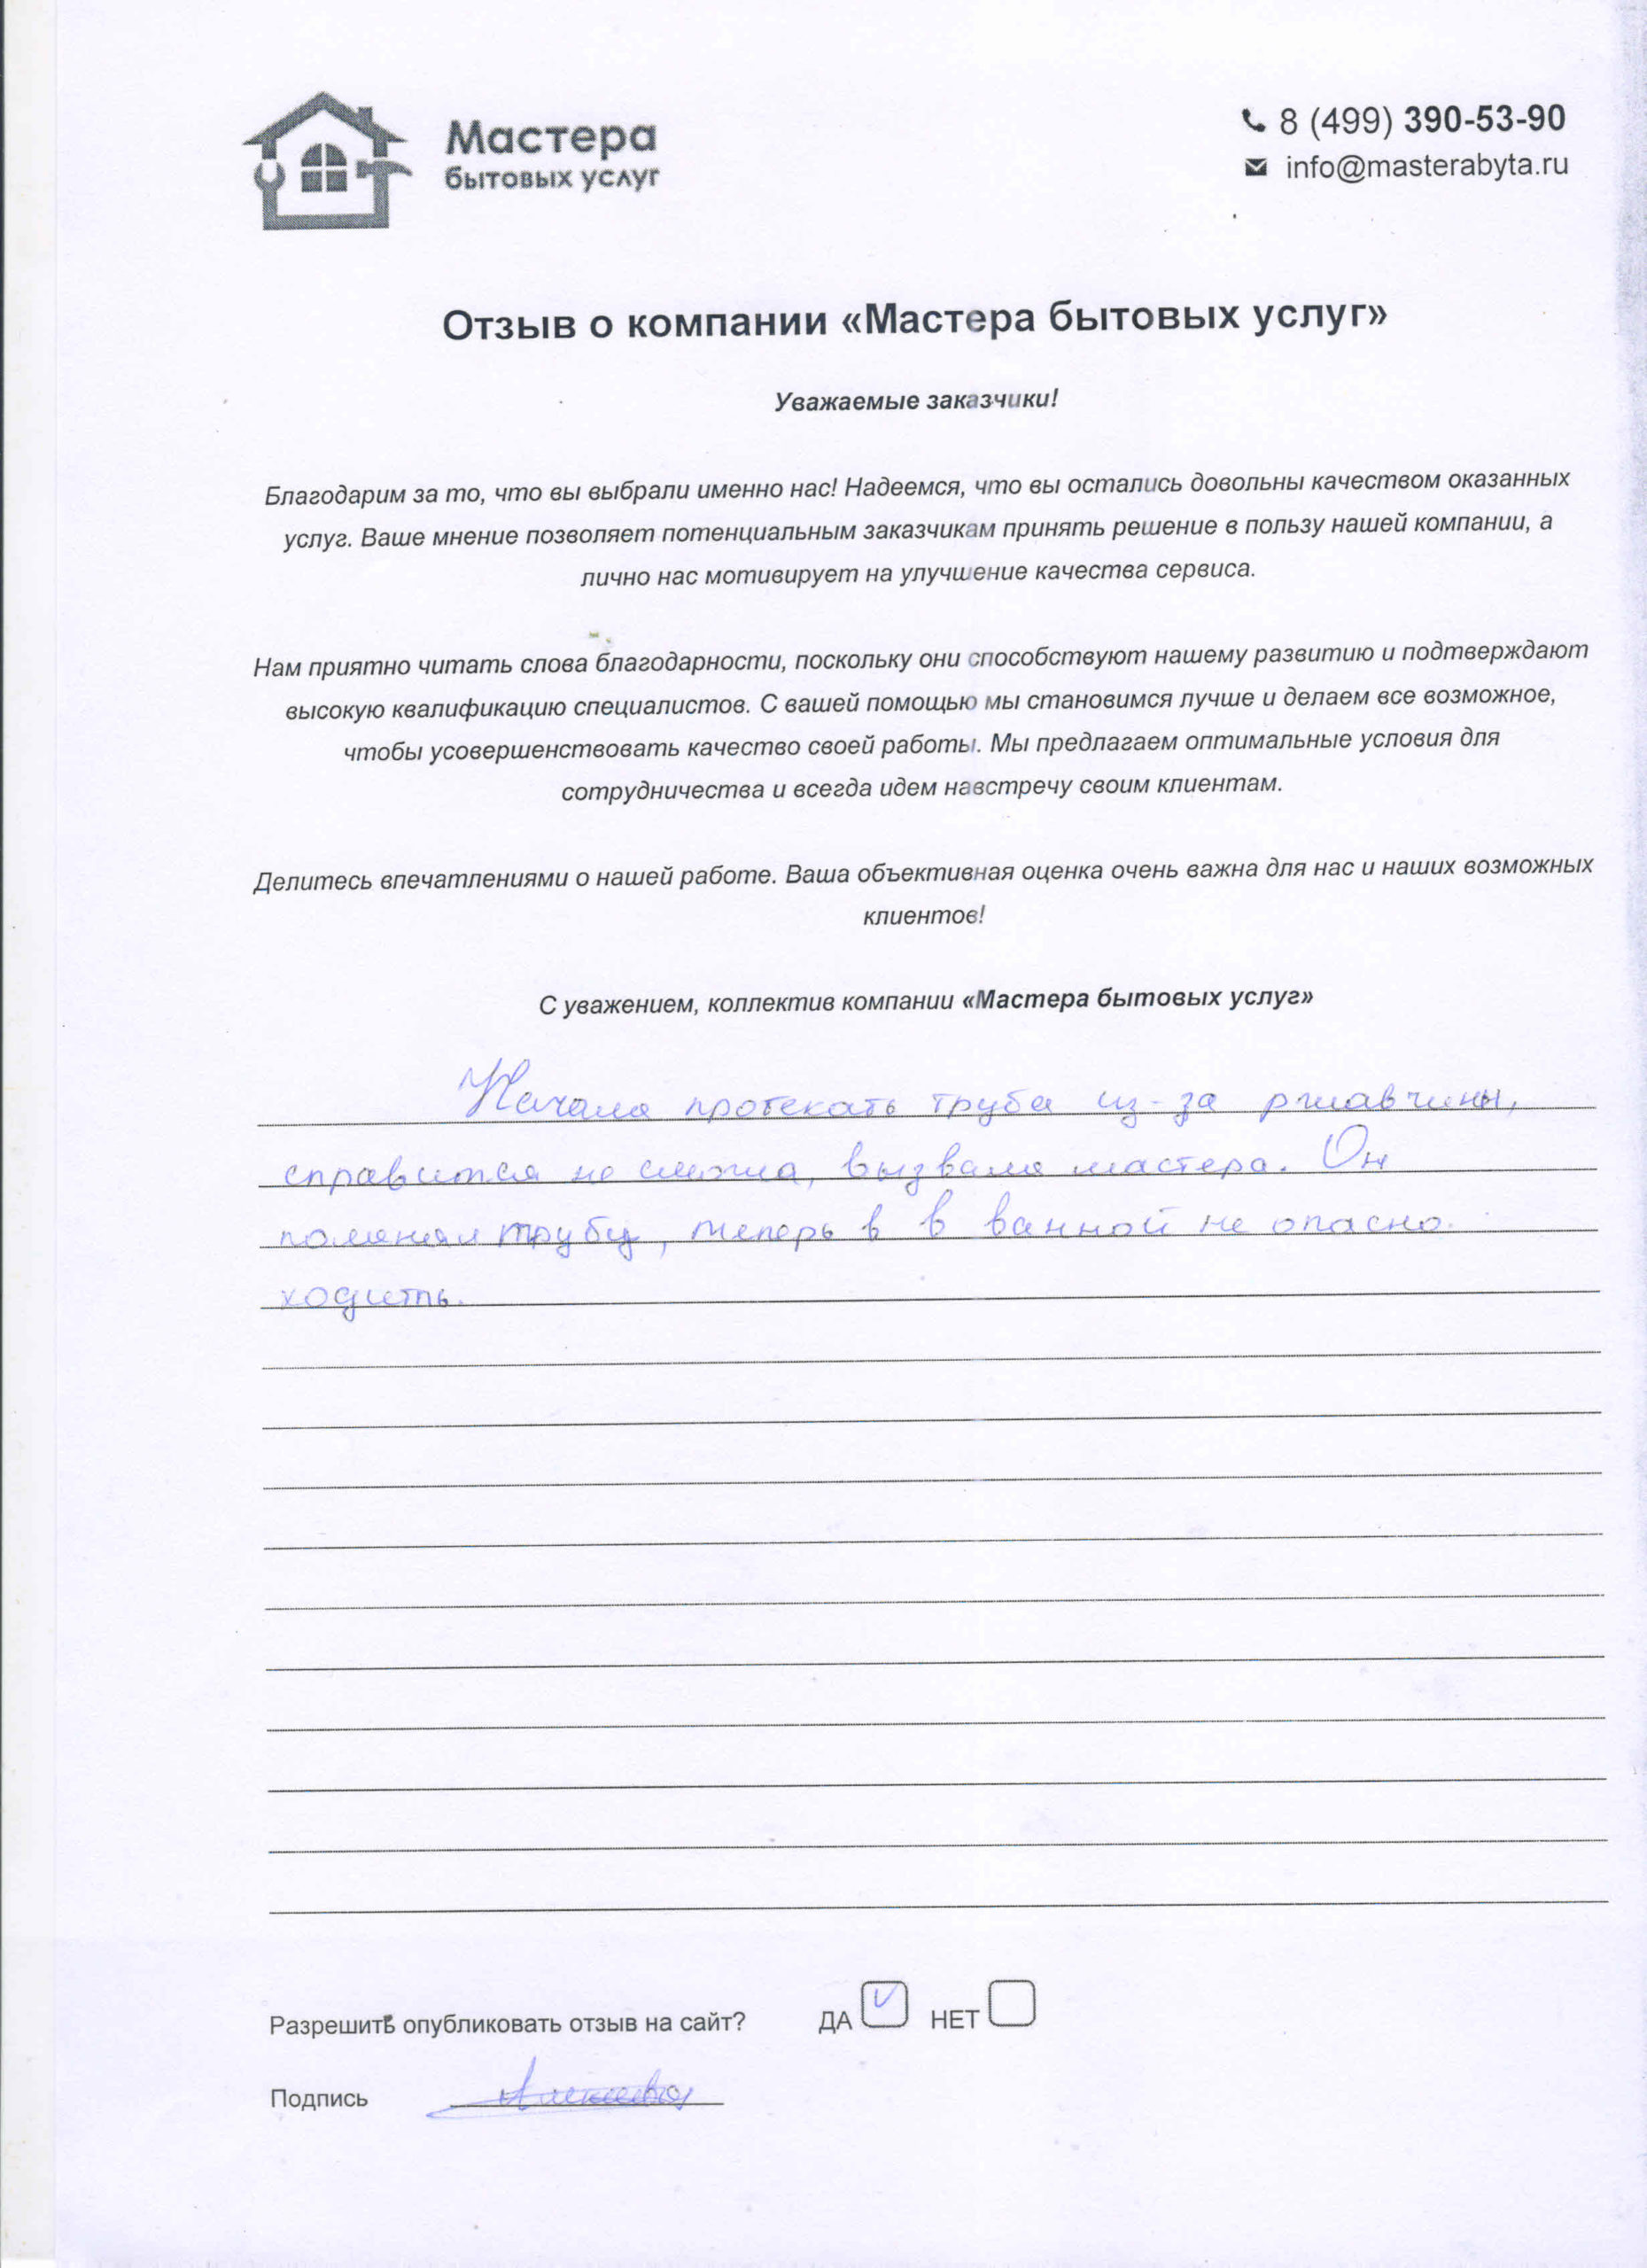 Мастера
бытовых услуг
8 (499) 390-53-90
info@masterabyta.ru
Отзыв о компании «Мастера бытовых услуг»
Уважаемые заказчики!
Благодарим за то, что вы выбрали именно нас! Надеемся, что вы остались довольны качеством оказанных
услуг. Ваше мнение позволяет потенциальным заказчикам принять решение в пользу нашей компании, а
лично нас мотивирует на улучшение качества сервиса.
Нам приятно читать слова благодарности, поскольку они способствуют нашему развитию и подтверждают
высокую квалификацию специалистов. С вашей помощью мы становимся лучше и делаем все возможное,
чтобы усовершенствовать качество своей работы. Мы предлагаем оптимальные условия для
сотрудничества и всегда идем навстречу своим клиентам.
Делитесь впечатлениями о нашей работе. Ваша объективная оценка очень важна для нас и наших возможных
клиентов!
С уважением, коллектив компании «Мастера бытовых услуг»
Начала протекать труба из-за ржавчины,
справится не смогла, вызвала мастера. Он
поменял трубу, теперь в в ванной не опасно
ходить.
Разрешить опубликовать отзыв на сайт? ДА НЕТ
Подпись